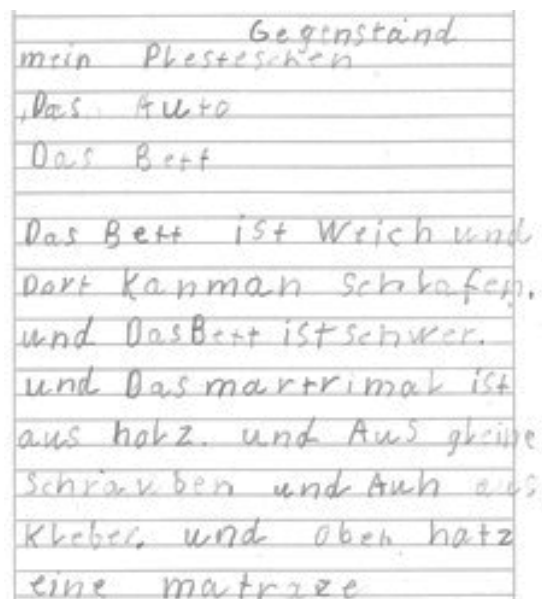 Gegenstand
mein Plesteschen
Das Auto
Das Bett
Das Bett ist Weich und
Dort kanman schlafen.
und DasBett istschwer.
und Das martrimal ist
aus holz. und Aus gleine
schrauben und Auh aus
Kleber. und oben hatz
eine matraze